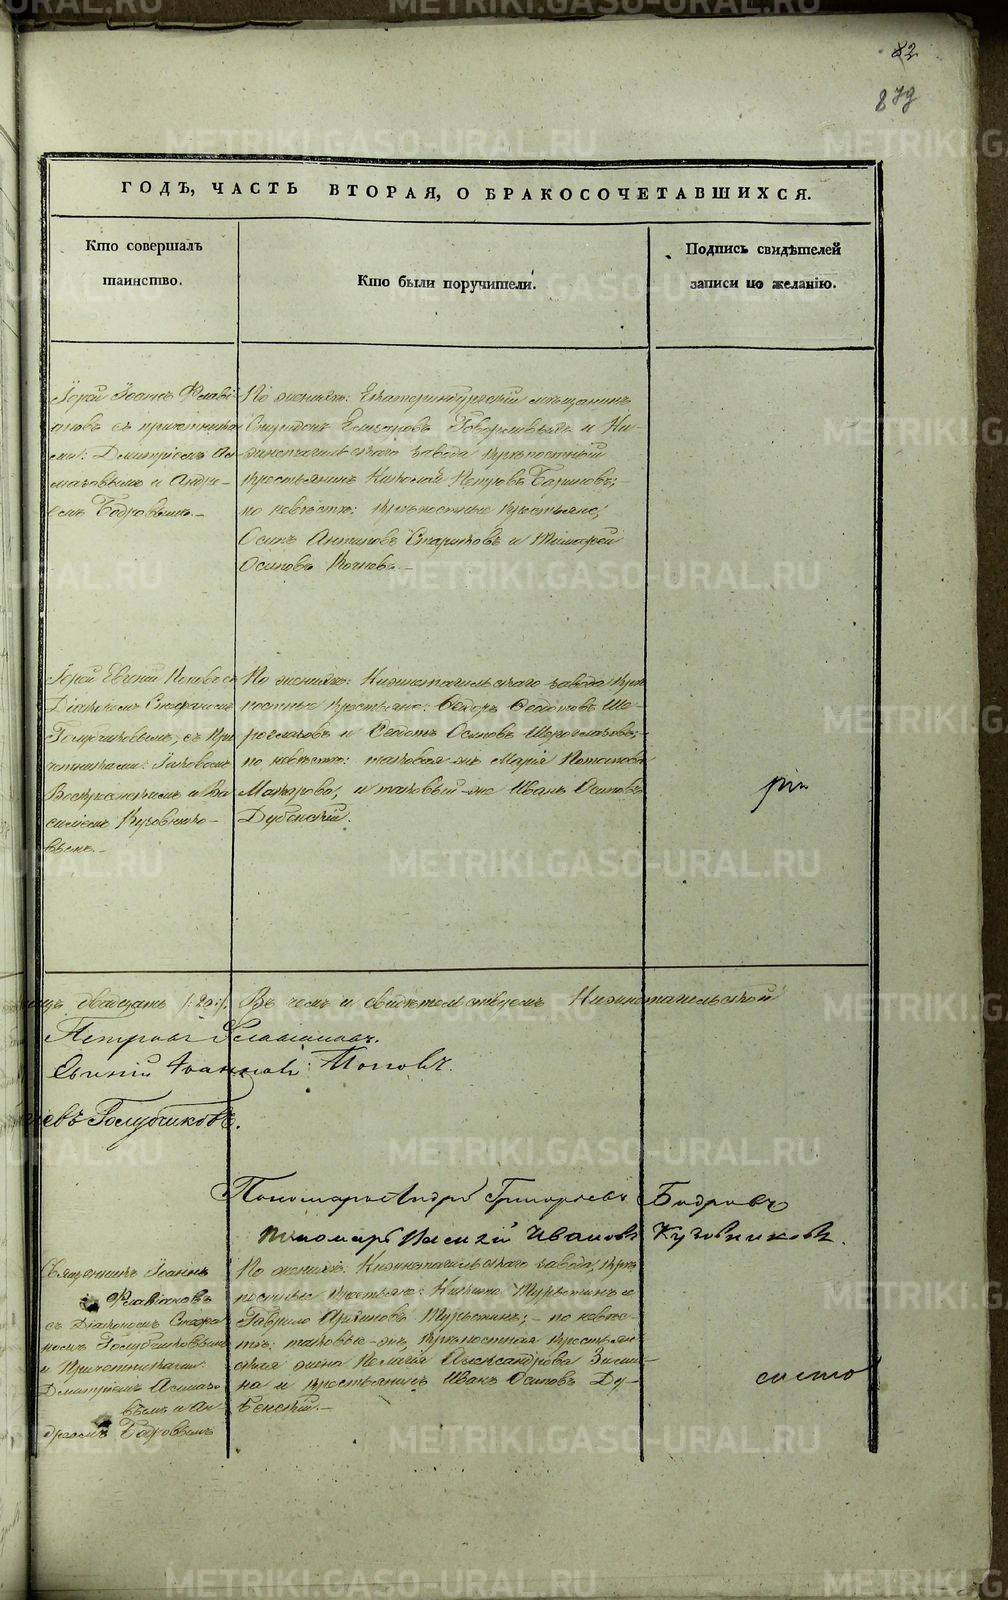 82
879
ГОДЪ, ЧАСТЬ ВТОРАЯ, О БРАКОСОЧЕТАВШИХСЯ.
Кто совершалъ
таинство.
Кто были поручители.
Подпись свидѣтелей
записи по желанію.
Іерей Іоаннъ Флаві-
ановъ съ причетника-
ми: Димитріемъ Ал-
мазовымъ и Андре-
емъ Бодровымъ.-
По женихѣ: Екатеринбургскій мѣщанинъ
Спиридонъ и Ни-
жнетагильскаго завода крѣпостный
крестьянинъ Николай Петровъ Бариновъ;-
по невѣстѣ: крѣпостные крестьяне,
Осипъ Антиповъ Стариковъ и Тимофей
Осиповъ
Іерей Евгеній Поповъ съ
Діакономъ Стефаномъ
Голубчиковымъ, съ При-
четниками: Іаковомъ
Воскресенскимъ и Ва-
силіемъ Кузовнико-
вымъ.-
По женихѣ: Нижнетагильскаго завода крѣ-
постные крестьяне: Ѳедоръ Ѳедотовъ
и Ѳедотъ Осиповъ
по невѣстѣ: таковая же Марія Потапова
Макарова, и таковый-же Иванъ Осиповъ
Дубенскій.
двадцать /:20:/. Въ чемъ и свидѣтельствуемъ Нижнетагильской
Петровъ Флавіановъ.
Евгеній Іоанновъ Поповъ.
евъ Голубчиковъ.
Пономарь Андрей Григорьевъ Бодровъ
пономарь Василій Ивановъ Кузовниковъ.
Священникъ Іоаннъ
Флавіановъ
съ Діакономъ Стефа-
номъ Голубчиковымъ
и Причетниками:
Димитріемъ Алмазо-
вымъ и Ан-
дреемъ Бодровымъ
По женихѣ: Нижнетагильскаго завода, крѣ-
постные крестьяне: Никита и
Гаврило; - по невѣс-
тѣ: таковые-же, крѣпостная крестьян-
ская жена Пелагія Александрова Зими-
на и крестьянинъ Иванъ Осиповъ Ду-
бенскій.-
METRIKI.GASO-URAL.RU